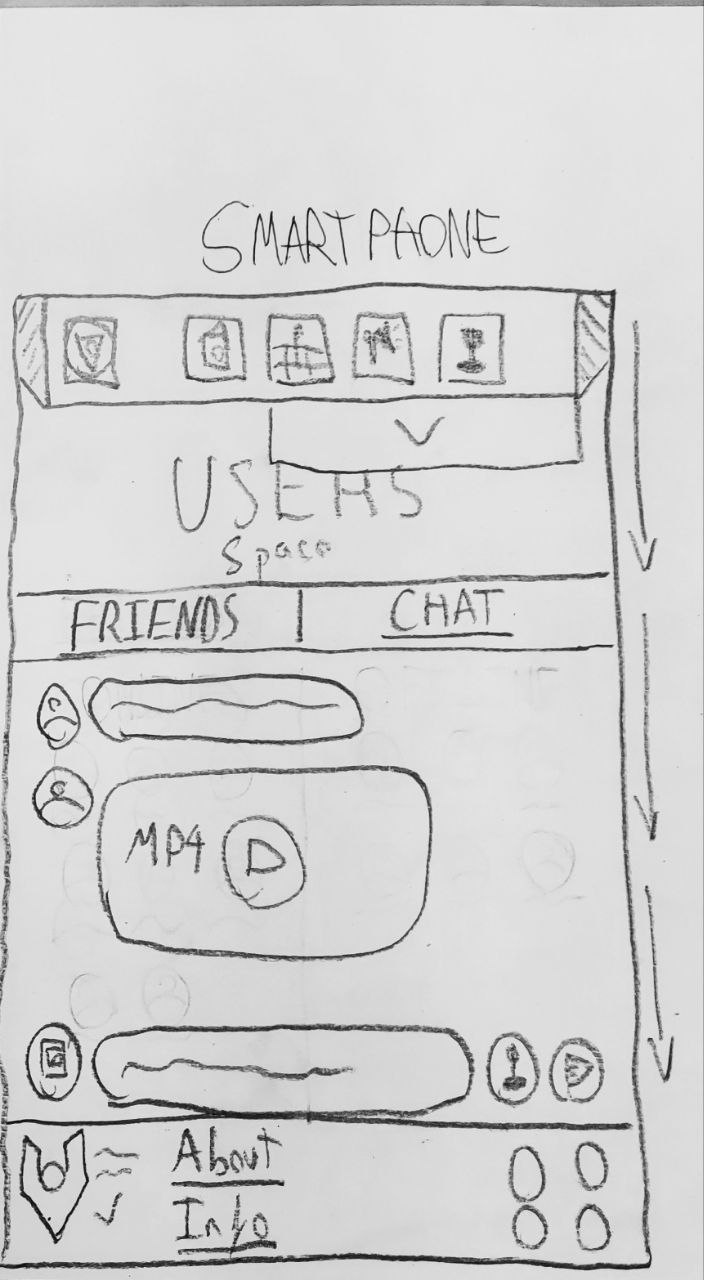 SMARTPHONE
USERS
Space
FRIENDS | CHAT
MP4
About
Info